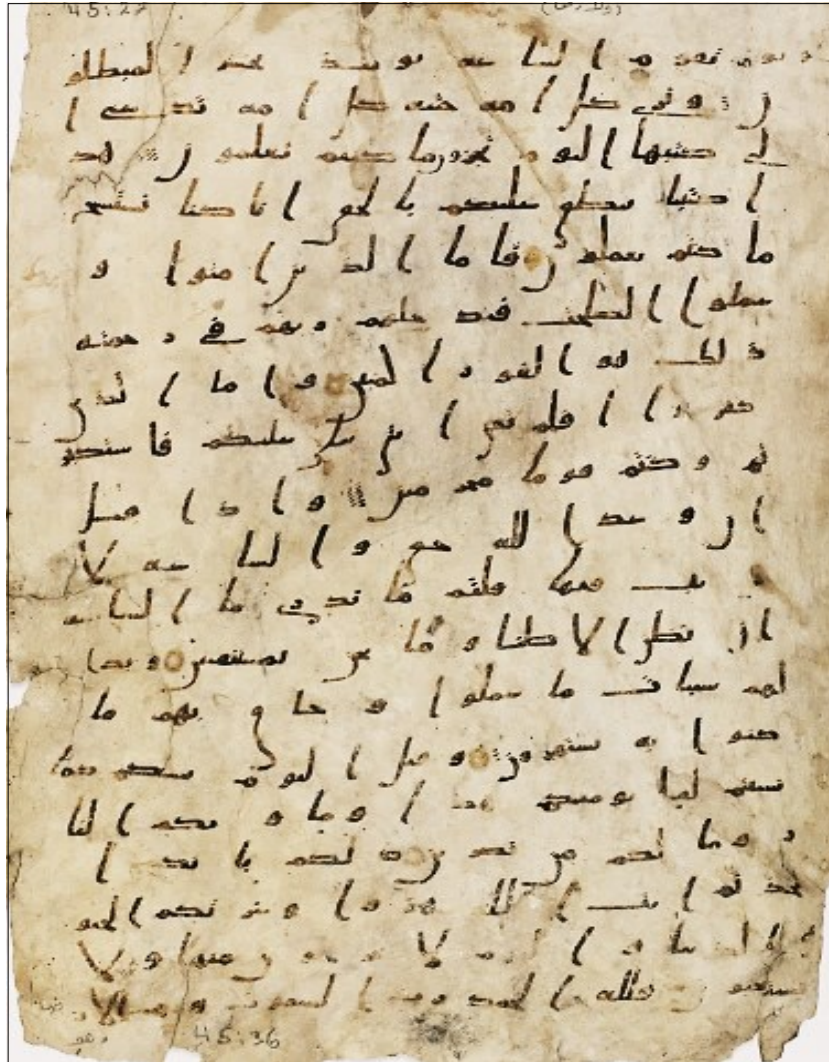 45:27
و يوم تقوم ا لسا عه يو مئذ يخسر ا لمبطلو
ن و تر ى كل ا مه جثيه كل ا مه تدعى ا
لى كتبها ا ليو م تجزون ما كنتم تعملو ن هذ
ا كتبنا ينطق عليكم با لحق ا نا كنا نستنسخ
ما كنتم تعملو ن فا ما ا لذ ين ا منو ا و
عملو ا ا لصلحت فيد خلهم ر بهم في ر حمته
ذ لك هو ا لفو ز ا لمبين و ا ما ا لذين
كفر و ا ا فلم تكن ا يتي تتلى عليكم فا ستكبر
تم و كنتم قو ما مجر مين و ا ذ ا قيل
ا ن و عد ا لله حق و ا لسا عه لا
ر يب فيها قلتم ما ند ر ي ما ا لسا عه
ا ن نظن ا لا ظنا و ما نحن بمستيقنين و بدا
لهم سيا ت ما عملو ا و حا ق بهم ما
كنو ا به يستهزون و قيل ا ليو م ننسيكم كما
نسيتم لقا يو مكم هذ ا و ما و يكم ا لنا
ر و ما لكم من نصر ين ذ لكم با نكم ا
تخذ تم ا يت ا لله هز و ا و غر تكم ا لحيو
ه ا لد نيا فا ليو م لا يخر جو ن منها و لا
يستعتبو ن فلله ا لحمد ر ب ا لسموت و ر ب ا لا
45:36